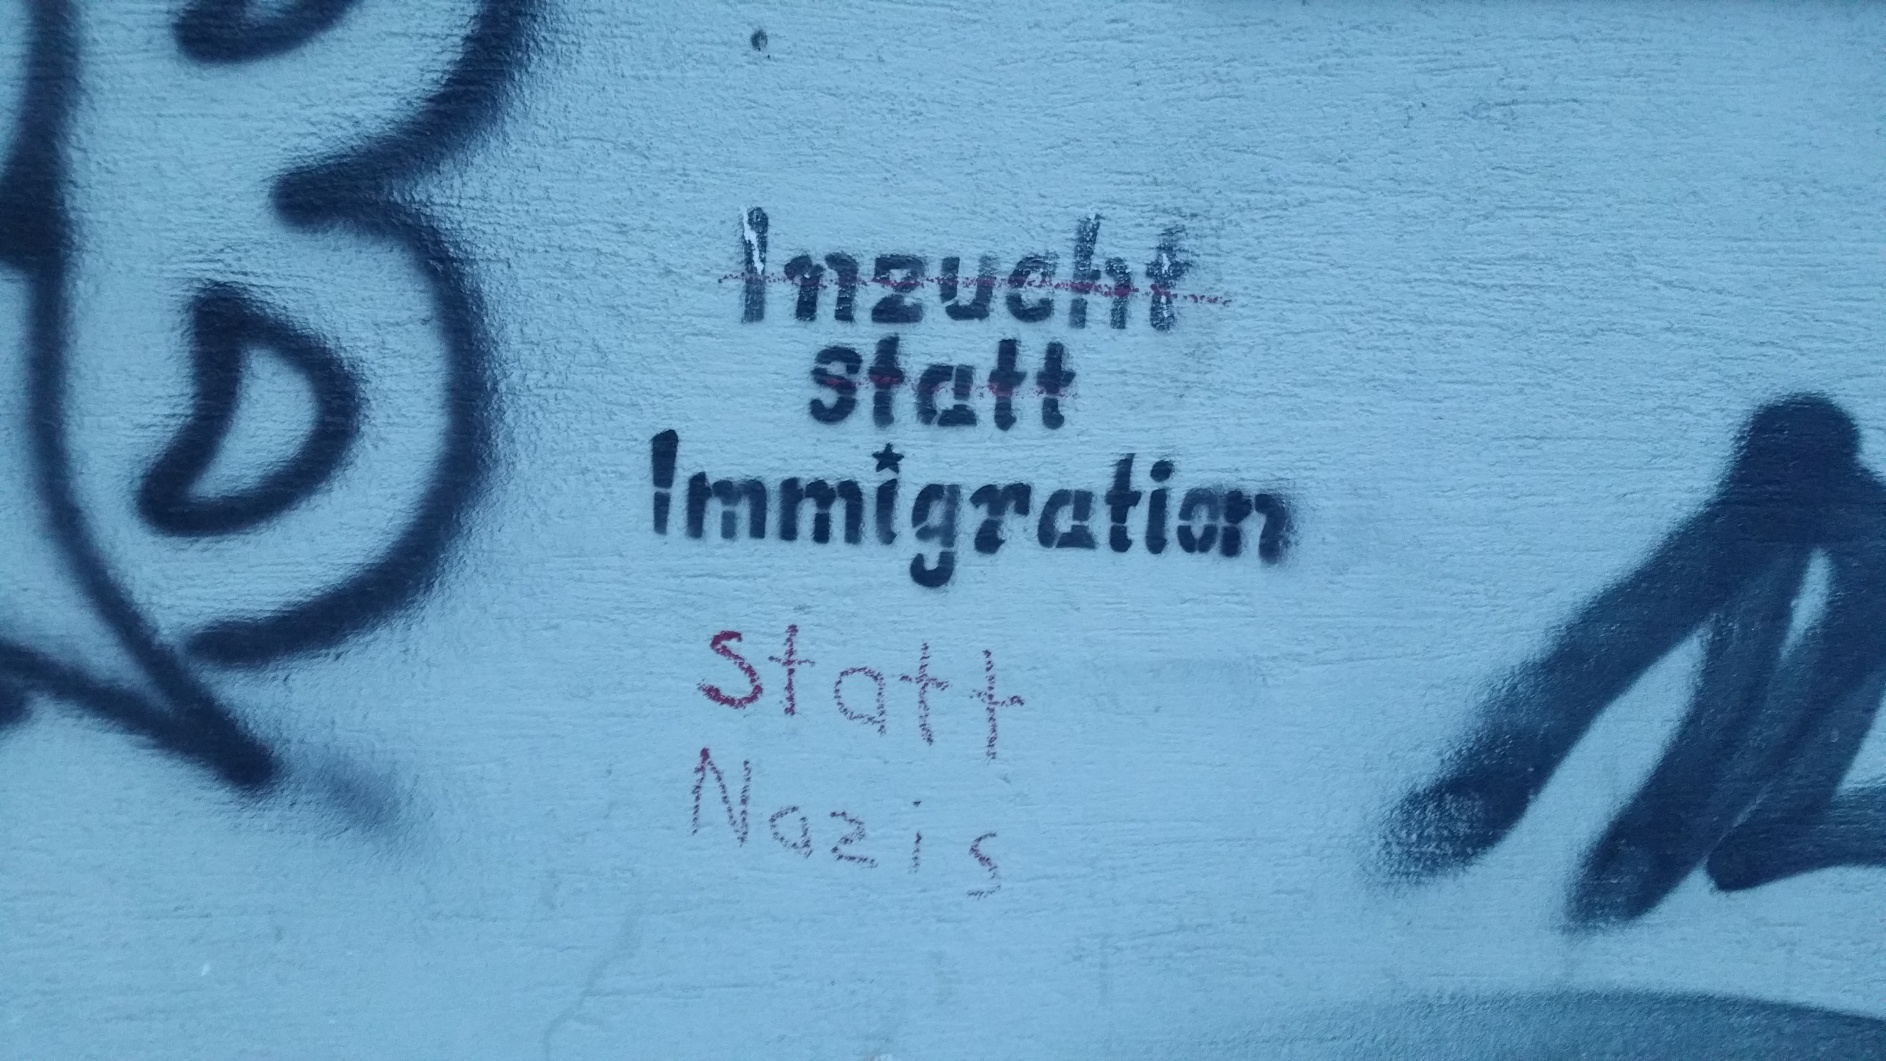 Inzucht
statt
Immigration
Statt
Nazis